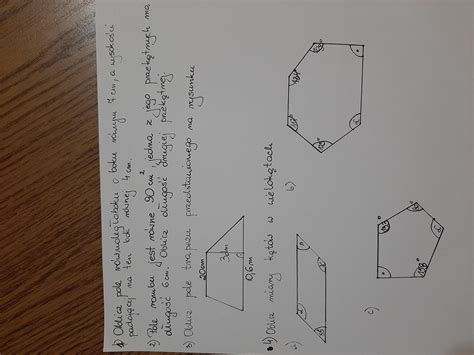 1) Oblicz pole równoległoboku o boku równym 7 cm, a wysokości
padającej na ten bok równej 4 cm.
2) Pole rombu jest równe 90 cm², jedna z jego przekątnych ma
długość 6 cm. Oblicz długość drugiej przekątnej.
3) Oblicz pole trapezu przedstawionego na rysunku
20cm
3dm
0,6m
4) Oblicz miary kątów w wielokątach
a)
b)
c)